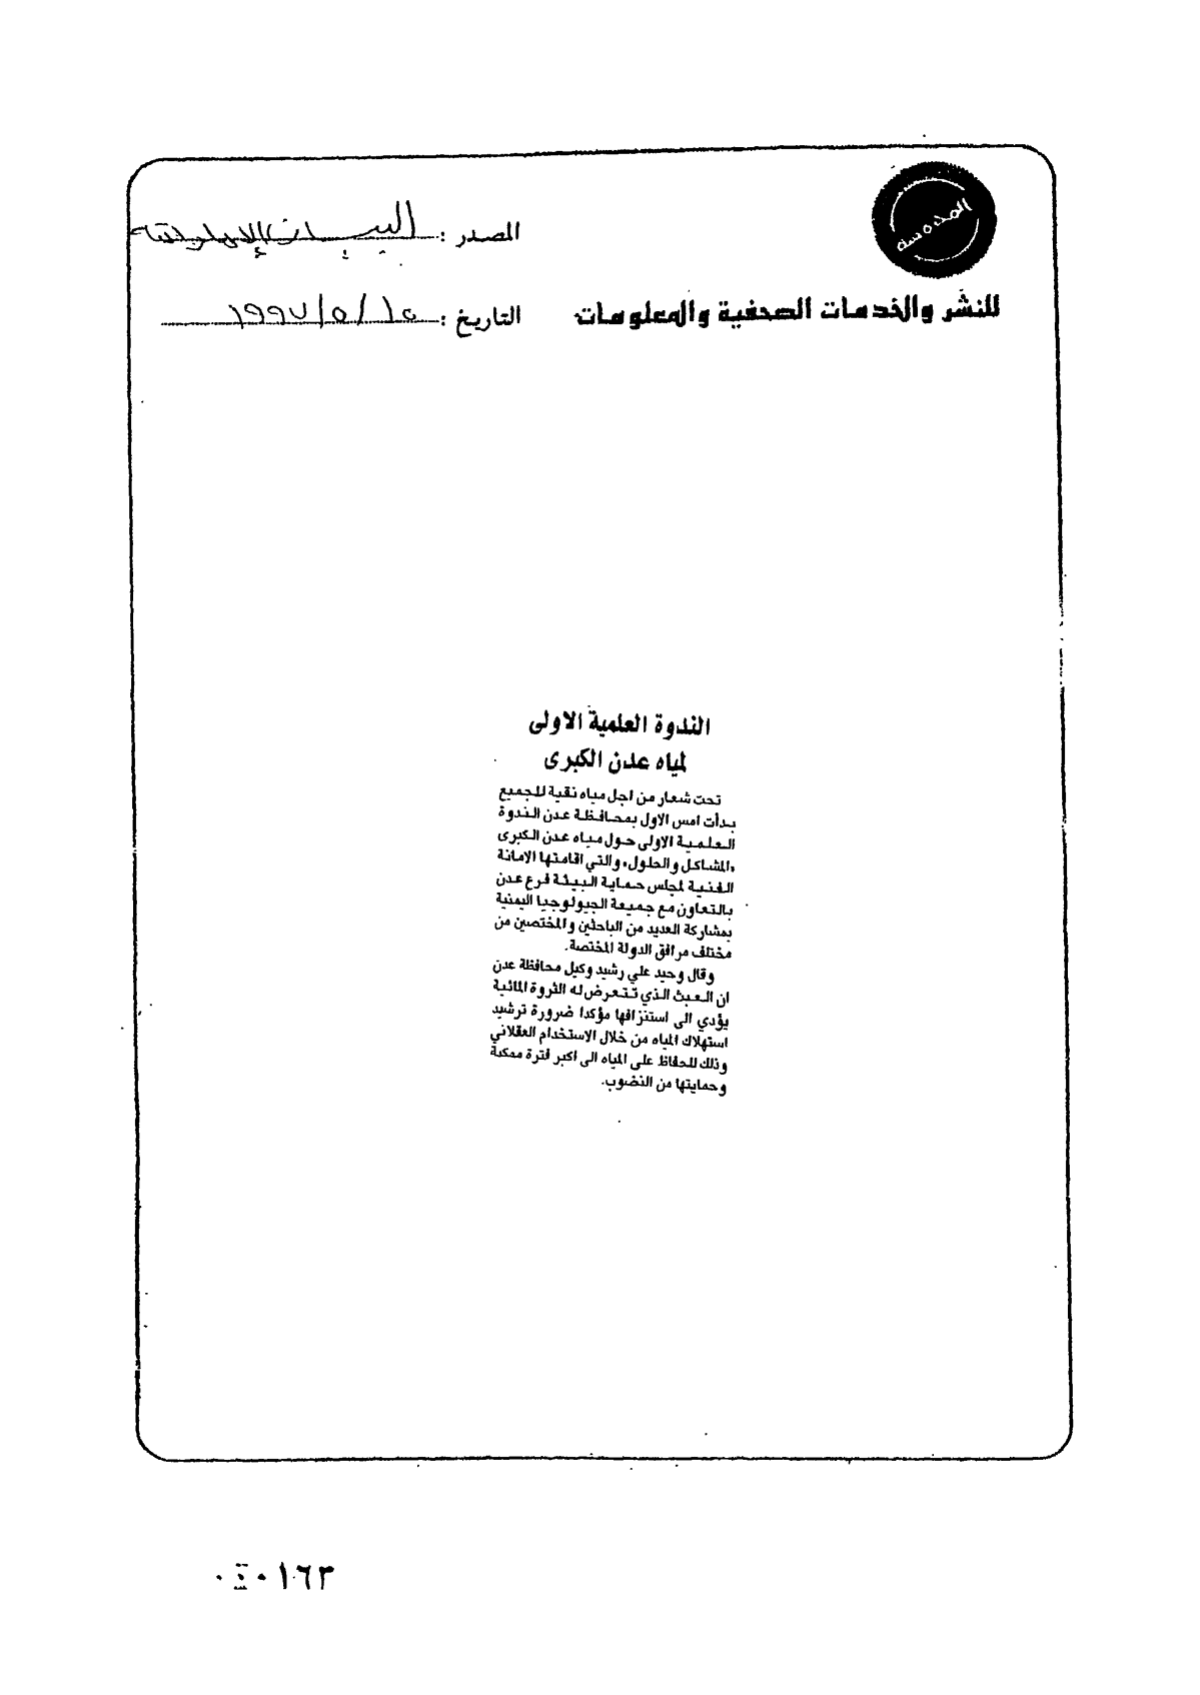 المصدر : البيان الإماراتية
للنشر والخدمات الصحفية والمعلومات
التاريخ : ١٥ / ٥ / ١٩٩٧
الندوة العلمية الاولى
لمياه عدن الكبرى
تحت شعار من اجل مياه نقية للجميع
بدأت امس الاول بمحافظة عدن الندوة
العلمية الاولى حول مياه عدن الكبرى
«المشاكل والحلول» والتي اقامتها الامانة
الفنية لمجلس حماية البيئة فرع عدن
بالتعاون مع جميعة الجيولوجيا اليمنية
بمشاركة العديد من الباحثين والمختصين من
مختلف مرافق الدولة المختصة.
وقال وحيد علي رشيد وكيل محافظة عدن
ان العبث الذي تتعرض له الثروة المائية
يؤدي الى استنزافها مؤكدا ضرورة ترشيد
استهلاك المياه من خلال الاستخدام العقلاني
وذلك للحفاظ على المياه الى اكبر فترة ممكنة
وحمايتها من النضوب.